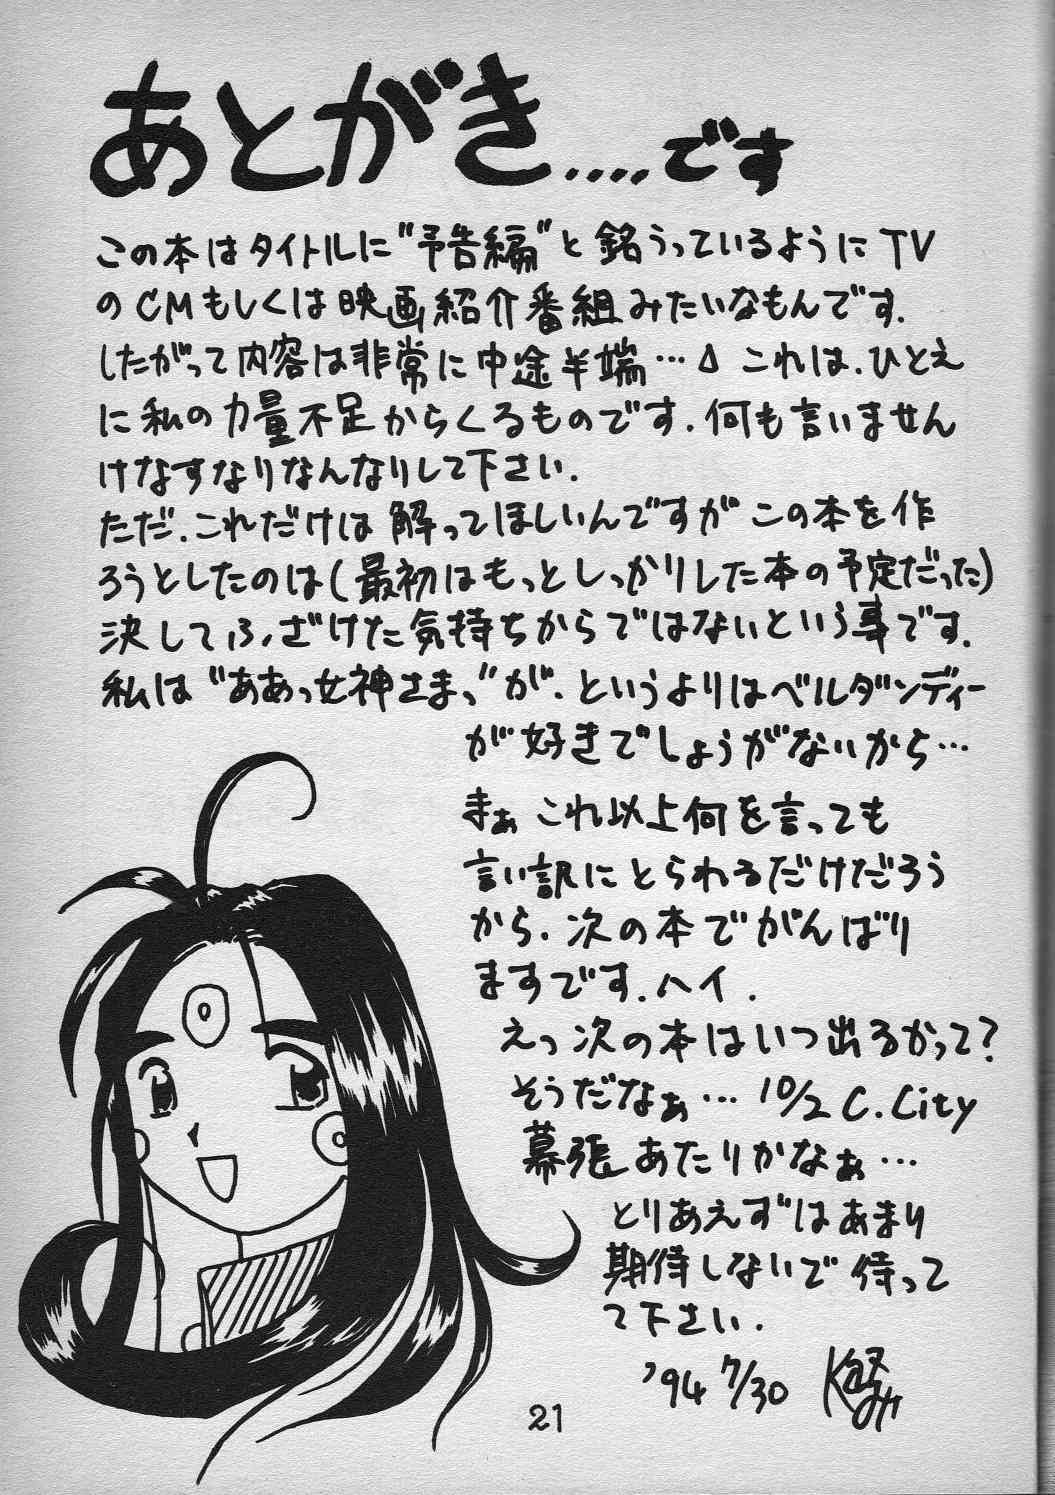 あとがき....です
この本はタイトルに"予告編"と銘うっているようにTV
のCMもしくは映画紹介番組みたいなもんです.
したがって内容は非常に中途半端…Δ これは.ひとえ
に私の力量不足からくるものです.何も言いません
けなすなりなんなりして下さい.
ただ.これだけは解ってほしいんですがこの本を作
ろうとしたのは(最初はもっとしっかりした本の予定だった)
決してふざけた気持ちからではないという事です.
私は"ああっ女神さまっ"が.というよりはベルダンディー
が好きでしょうがないから…
まぁこれ以上何を言っても
言い訳にとられるだけだろう
から.次の本でがんばり
ますです.ハイ.
えっ次の本はいつ出るかって?
そうだなぁ…10/2 C.City
幕張あたりかなぁ…
とりあえずはあまり
期待しないで待って
て下さい.
'94 7/30
21